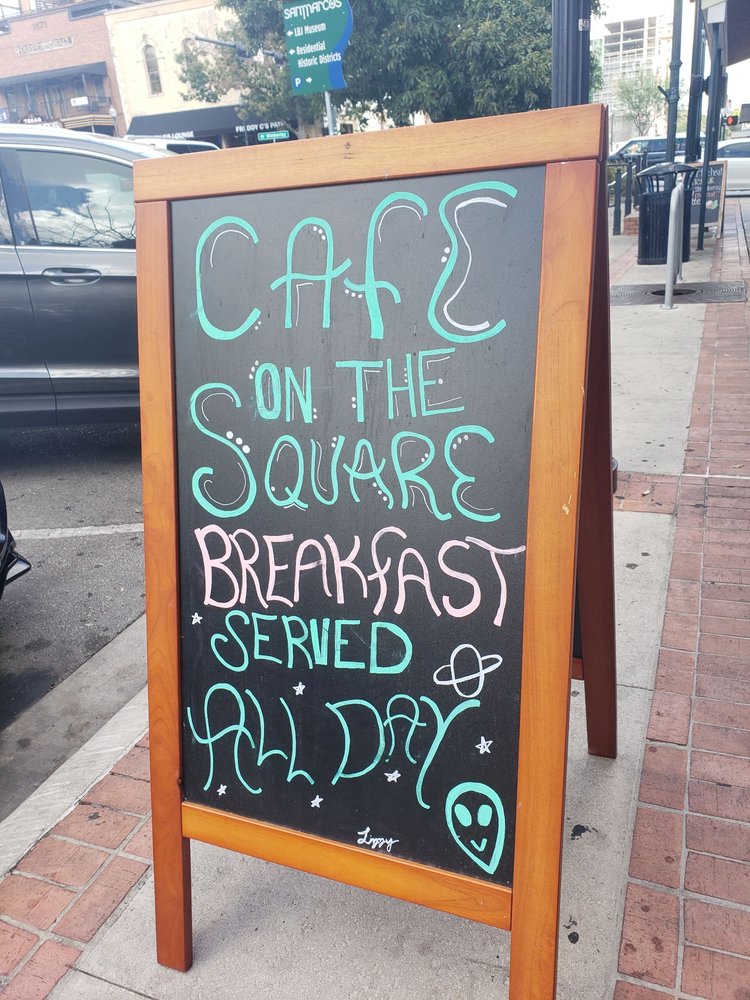 SANMARCOS
LBJ Museum
Residential
Historic Districts
P
1873
FREDDY C'S
CAFE
ON THE
SQUARE
BREAKFAST
SERVED
ALL DAY
Lizzy